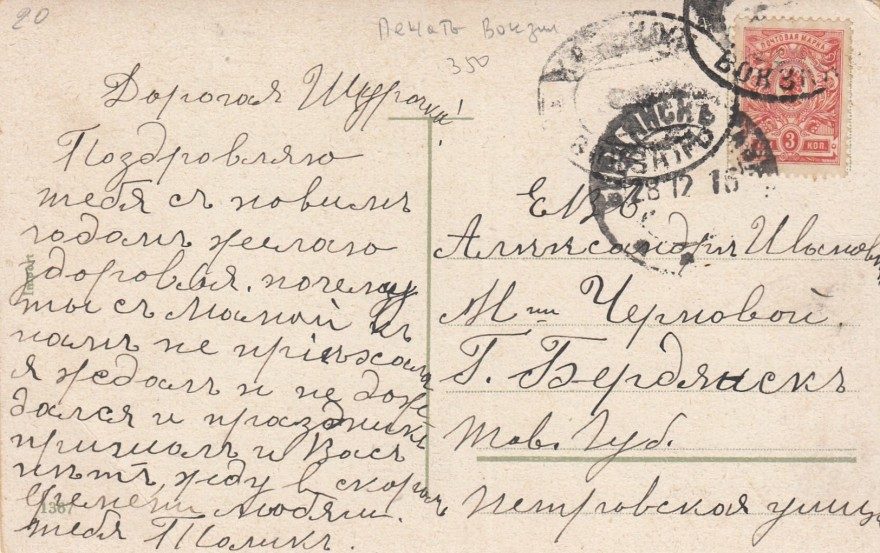 20
Печать Вокзал
350
Дорогая Шурочка!
Поздровляю
тебя съ новимъ
годомъ желаю
здоровья. почему
ты съ мамой къ
намъ не пріѣхала
я ждалъ и не дож
дался и праздникъ
пришолъ и Васъ
нѣтъ, жду в скоромъ
времени любящ.
тебя Толикъ.
1367
ПОЧТОВАЯ МАРКА
3 КОП.
ВОКЗАЛ
БЕРДЯНСКЪ
28 12 16
ЕВБ
Александра Ивановн
М-ши Черновой.
Г. Бердянскъ
Тав. Губ.
Петровская улица